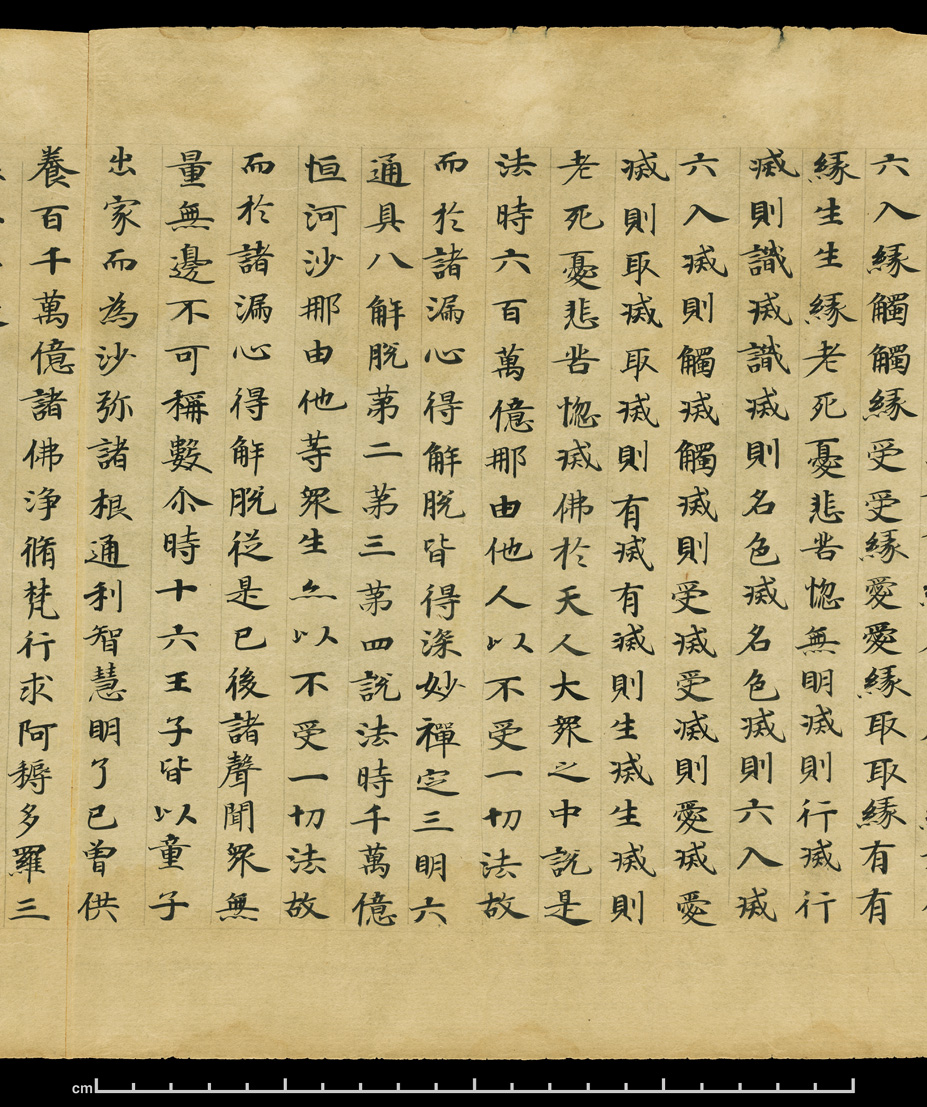 六入緣觸觸緣受受緣愛愛緣取取緣有有
緣生生緣老死憂悲苦惚無明滅則行滅行
滅則識滅識滅則名色滅名色滅則六入滅
六入滅則觸滅觸滅則受滅受滅則愛滅愛
滅則取滅取滅則有滅有滅則生滅生滅則
老死憂悲苦惚滅佛於天人大眾之中說是
法時六百萬億那由他人以不受一切法故
而於諸漏心得解脫皆得深妙禪定三明六
通具八解脫第二第三第四說法時千萬億
恒河沙那由他等眾生亦以不受一切法故
而於諸漏心得解脫從是已後諸聲聞眾無
量無邊不可稱數尒時十六王子皆以童子
出家而為沙弥諸根通利智慧明了已曾供
養百千萬億諸佛淨脩梵行求阿耨多羅三
cm